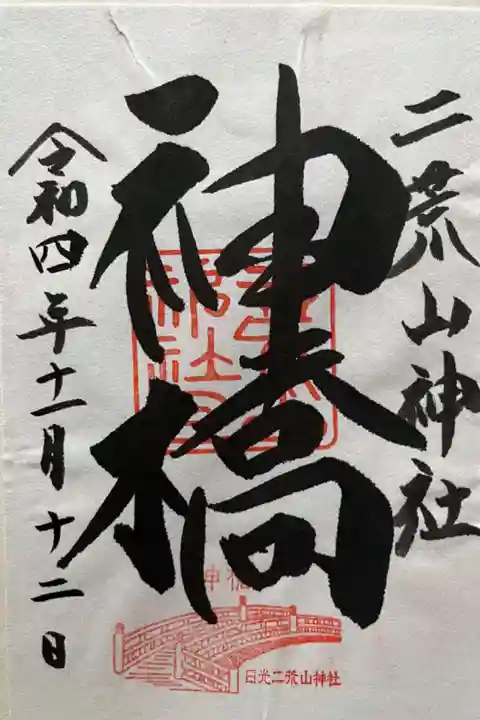 二荒山神社
神橋
令和四年十一月十二日
神橋
日光二荒山神社